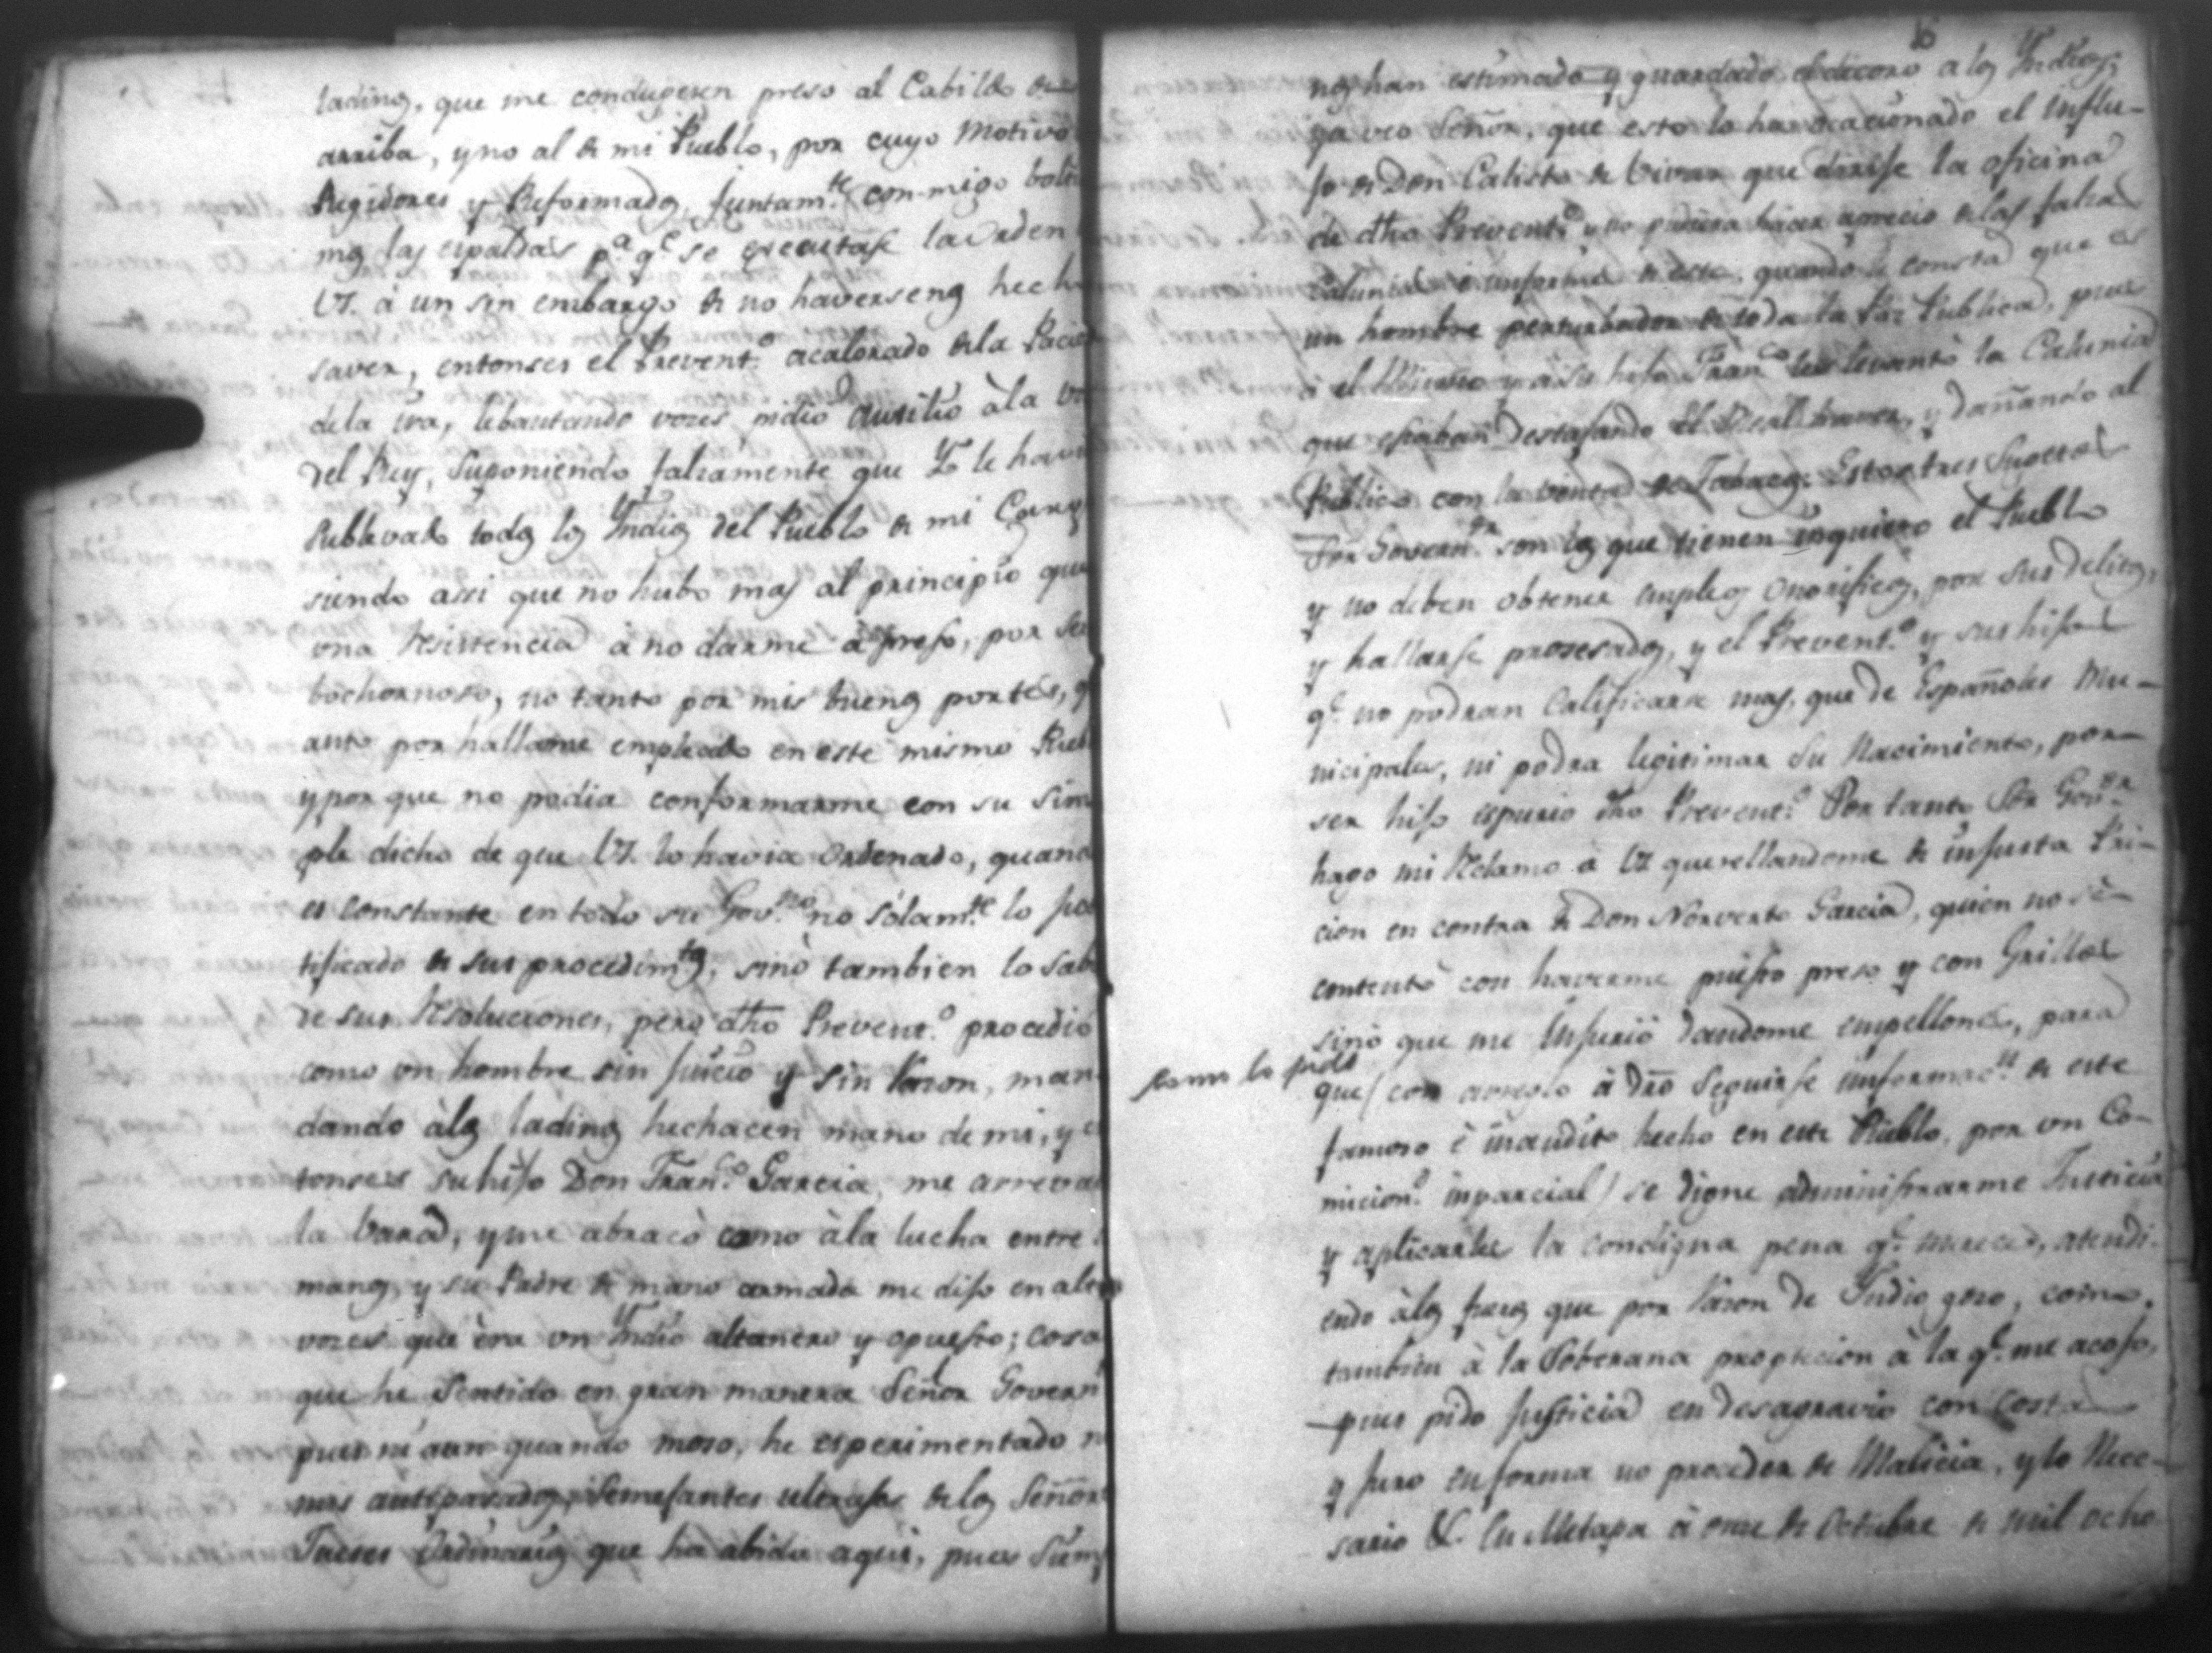 ladinos, que me condugesen preso al Cabildo de
arriba, y no al de mi Pueblo, por cuyo Motivo
Regidores y Reformados, juntam.te con migo bolti
mos las espaldas p.a q.e se executase la Orden
VS. à un sin embargo de no haversenos hech
saver, entonses el Prevent.o acalorado de la Pacio
de la ira, lebantando vozes pidio Auxilio à la Vo
del Rey, Suponiendo falzamente que Yo le havi
Sublevado todos los Yndios del Pueblo de mi Carg
siendo assi que no hubo mas al principio que
vna Resistencia à no darme à preso, por ser
bochornoso, no tanto por mis buenos portes, q
anto por hallarme empleado en este mismo Pueb
y por que no podia conformarme con su Sim
ple dicho de que VS. lo havia Ordenado, quand
es constante en todo su Gov.no no sólam.te lo jus
tificado de sus procedim.tos, sinò tambien lo sab
de sus Resoluciones, pero dho Prevent.o procedió
como vn hombre sin juicio y sin Razon, man
dando àlos ladinos hechacen mano de mi, y en
tonses su hijo Don Fran.co Garcia, me arreva
la Vara, y me abracò como à la lucha entre
manos, y su Padre de mano armada me dijo en altas
vozes que èra vn Yndio altanero y opuesto; cosa
que he Sentido en gran manera Señor Govern
pues ni aun quando moso, he esperimentado n
mis antepasados, Semejantes ultrajes de los Señor
Jueses Ordinarios que ha abido aqui, pues Siemp
16
nos han estimado y guardado el decoro a los Yndios;
ya veo Señor, que esto lo ha ocacionado el influ-
jo de Don Calisto de Vivar que dirije la oficina
de dho Prevent.o y no pudiera hacer aprecio de las falzas
Calunias é informes de este, quando le consta que es
un hombre perturbador de toda la Paz Publica, pues
à el Mismo y à su hijo Fran.co les levantò la Calunia
que estaban Destafando el Real haver, y Dañando al
Publico con la venta de Tabacos: Estos tres Sugetos
Sor Govern.or son los que tienen inquieto el Pueblo
y no deben obtener empleos Onorificos, por sus delitos,
y hallarse prosesados, y el Prevent.o y sus hijos
q.e no podran Calificarse mas, que de Españoles Mu-
nicipales, ni podra legitimar su Nacimiento, por
ser hijo espurio dho Prevent.o Por tanto Sor Gov.or
hago mi Reclamo à VS querellandome de injusta Pri-
cion en contra de Don Norverto Garcia, quien no sè
contentò con haverme puesto preso y con Grillos
sinò que me Injurió Dandome empellones, para
como lo pido
que (con arreglo à Dro Seguirse informac.n de este
famoso è inaudito hecho en este Pueblo, por vn Co-
micion.o inparcial) se digne administrarme Justicia
y aplicarles la condigna pena q.e merece, atendi-
endo àlos fueros que por Razon de Yndio goso, como
tambien à la Soberana proptecion à la q.e me acojo,
pues pido justicia en desagravio con costas
y juro en forma no proceder de Malicia, y lo Nece-
sario &. En Metapa à onze de Octubre de mil ocho